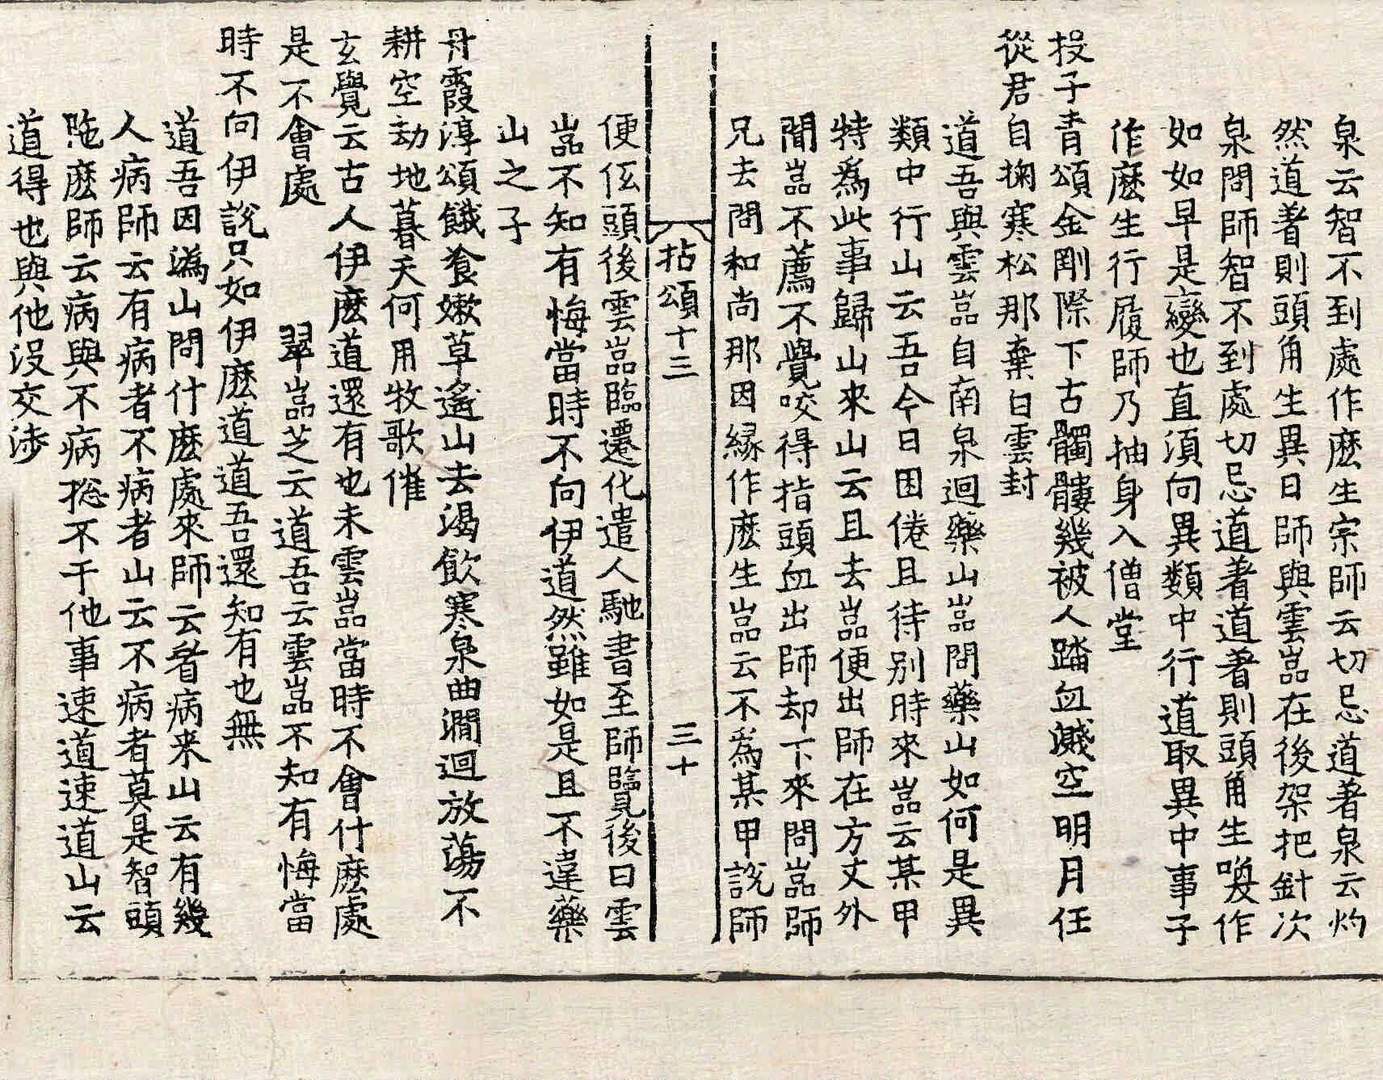 泉云智不到處作麽生宗師云切忌道著泉云灼
然道著則頭角生異日師與雲嵓在後架把針次
泉問師智不到處切忌道著道著則頭角生喚作
如如早是變也直須向異類中行道取異中事子
作麽生行履師乃抽身入僧堂
投子青頌金剛際下古髑髏幾被人踏血濺空明月任
從君自掬寒松那棄白雲封
道吾與雲嵓自南泉迴藥山嵓問藥山如何是異
類中行山云吾今日困倦且待別時來嵓云某甲
特爲此事歸山來山云且去嵓便出師在方丈外
聞嵓不薦不覺咬得指頭血出師却下來問嵓師
兄去問和尚那因緣作麽生嵓云不爲某甲說師
拈頌十三 三十
便伭頭後雲嵓臨遷化遣人馳書至師覽後曰雲
嵓不知有悔當時不向伊道然雖如是且不違藥
山之子
丹霞淳頌餓飡嫩草遙山去渴飮寒泉曲澗迴放蕩不
耕空劫地暮天何用牧歌催
玄覺云古人伊麽道還有也未雲嵓當時不會什麽處
是不會處 翠嵓芝云道吾云雲嵓不知有悔當
時不向伊說只如伊麽道道吾還知有也無
道吾因潙山問什麽處來師云看病來山云有幾
人病師云有病者不病者山云不病者莫是智頭
陁麽師云病與不病捴不干他事速道速道山云
道得也與他沒交涉